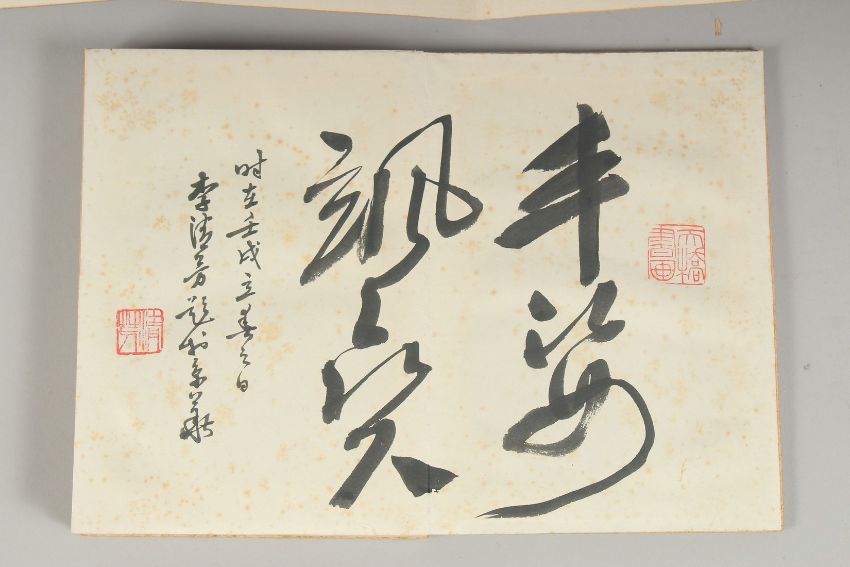 丰姿
飒爽
时在壬戌立春之日
李清芳题於京华
清芳